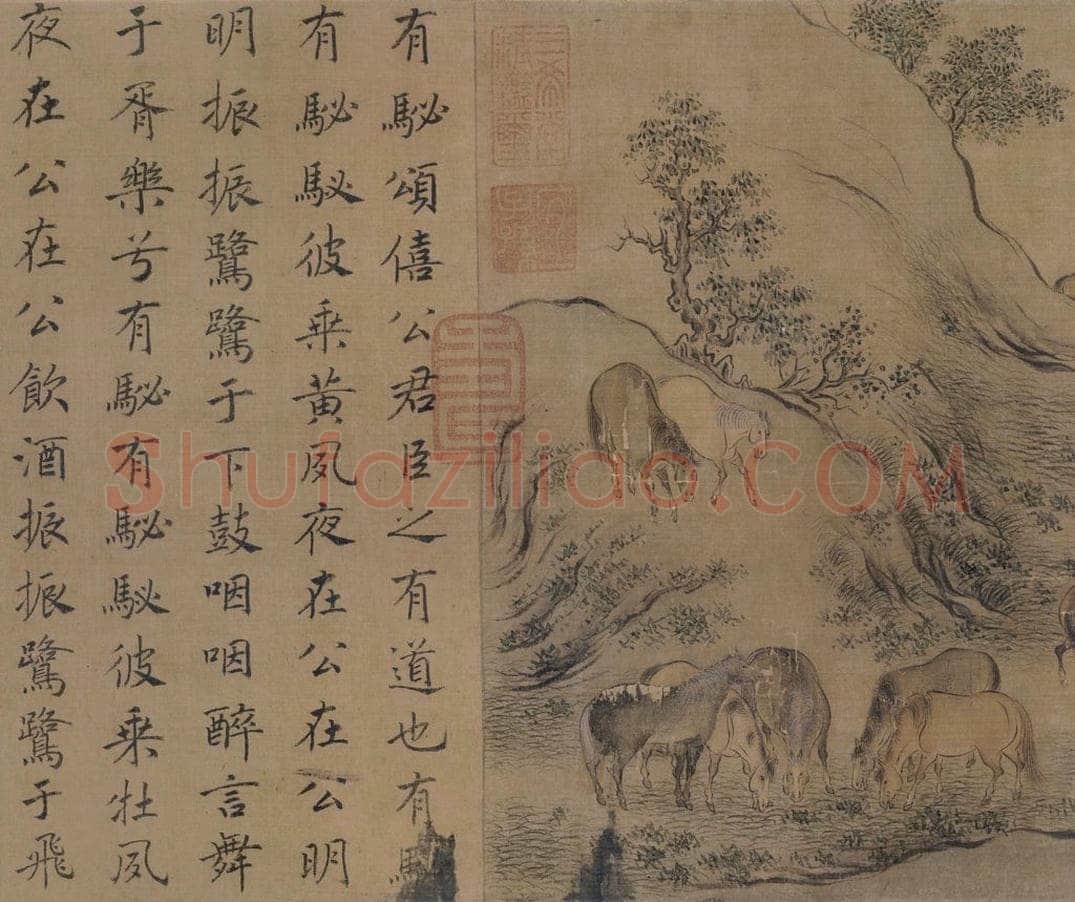 有駜頌僖公君臣之有道也有
有駜駜彼乗黄夙夜在公在公明
明振振鷺鷺于下鼓咽咽醉言舞
于胥樂兮有駜有駜駜彼乗牡夙
夜在公在公飲酒振振鷺鷺于飛
Shufaziliao.COM